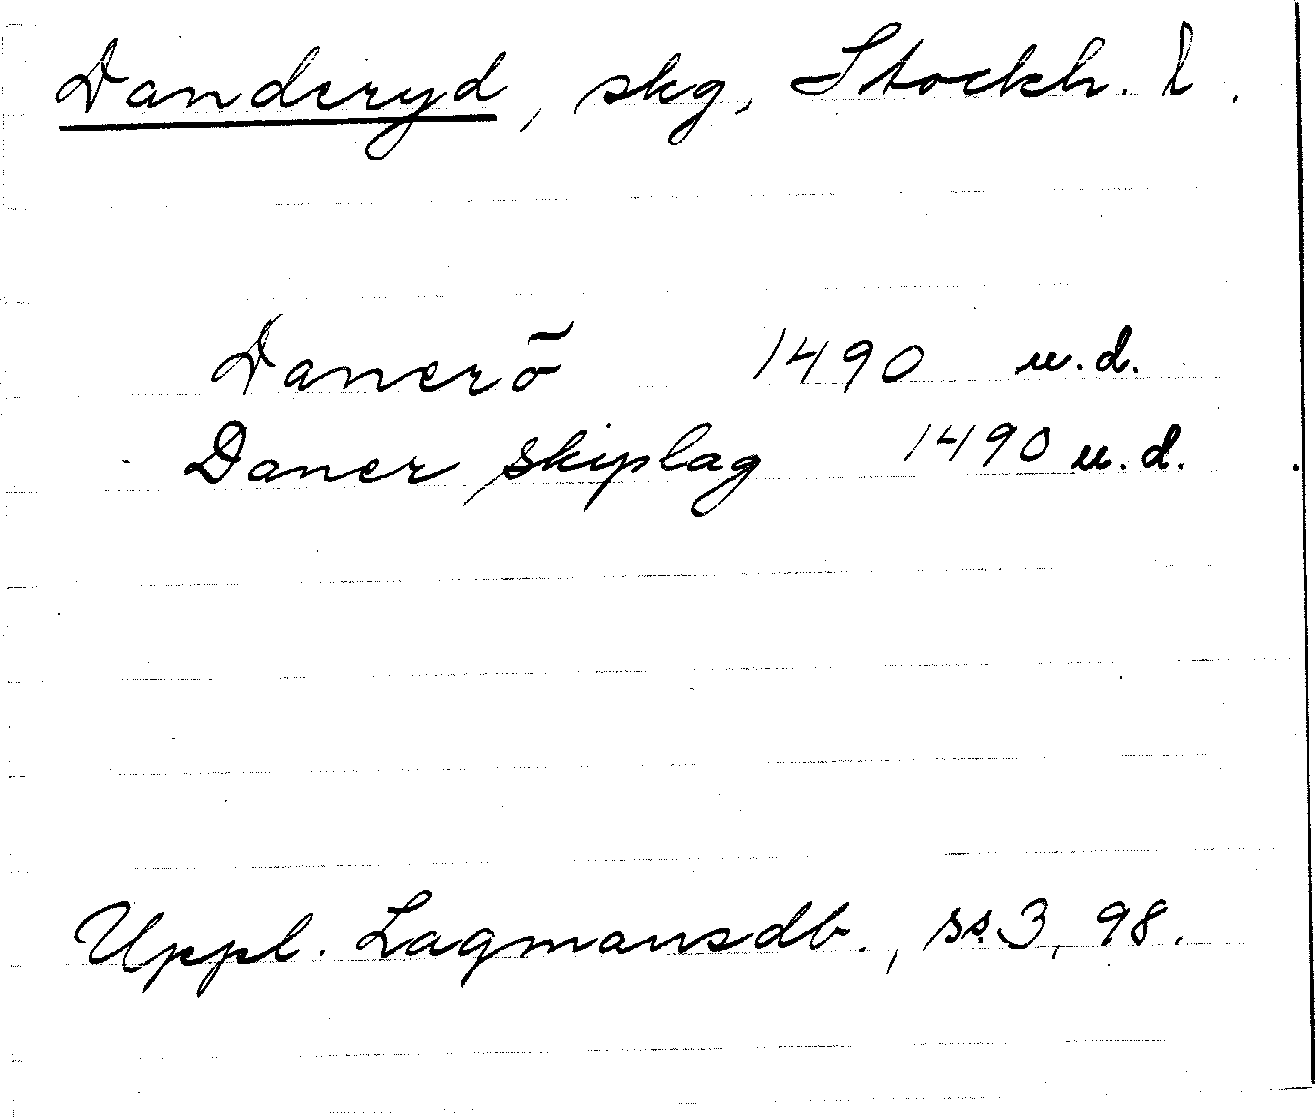 Danderyd, skg, Stockh. l.
Danerö 1490 u.d.
Daner skiplag 1490 u.d.
Uppl. Lagmansdb., ss. 3, 98.